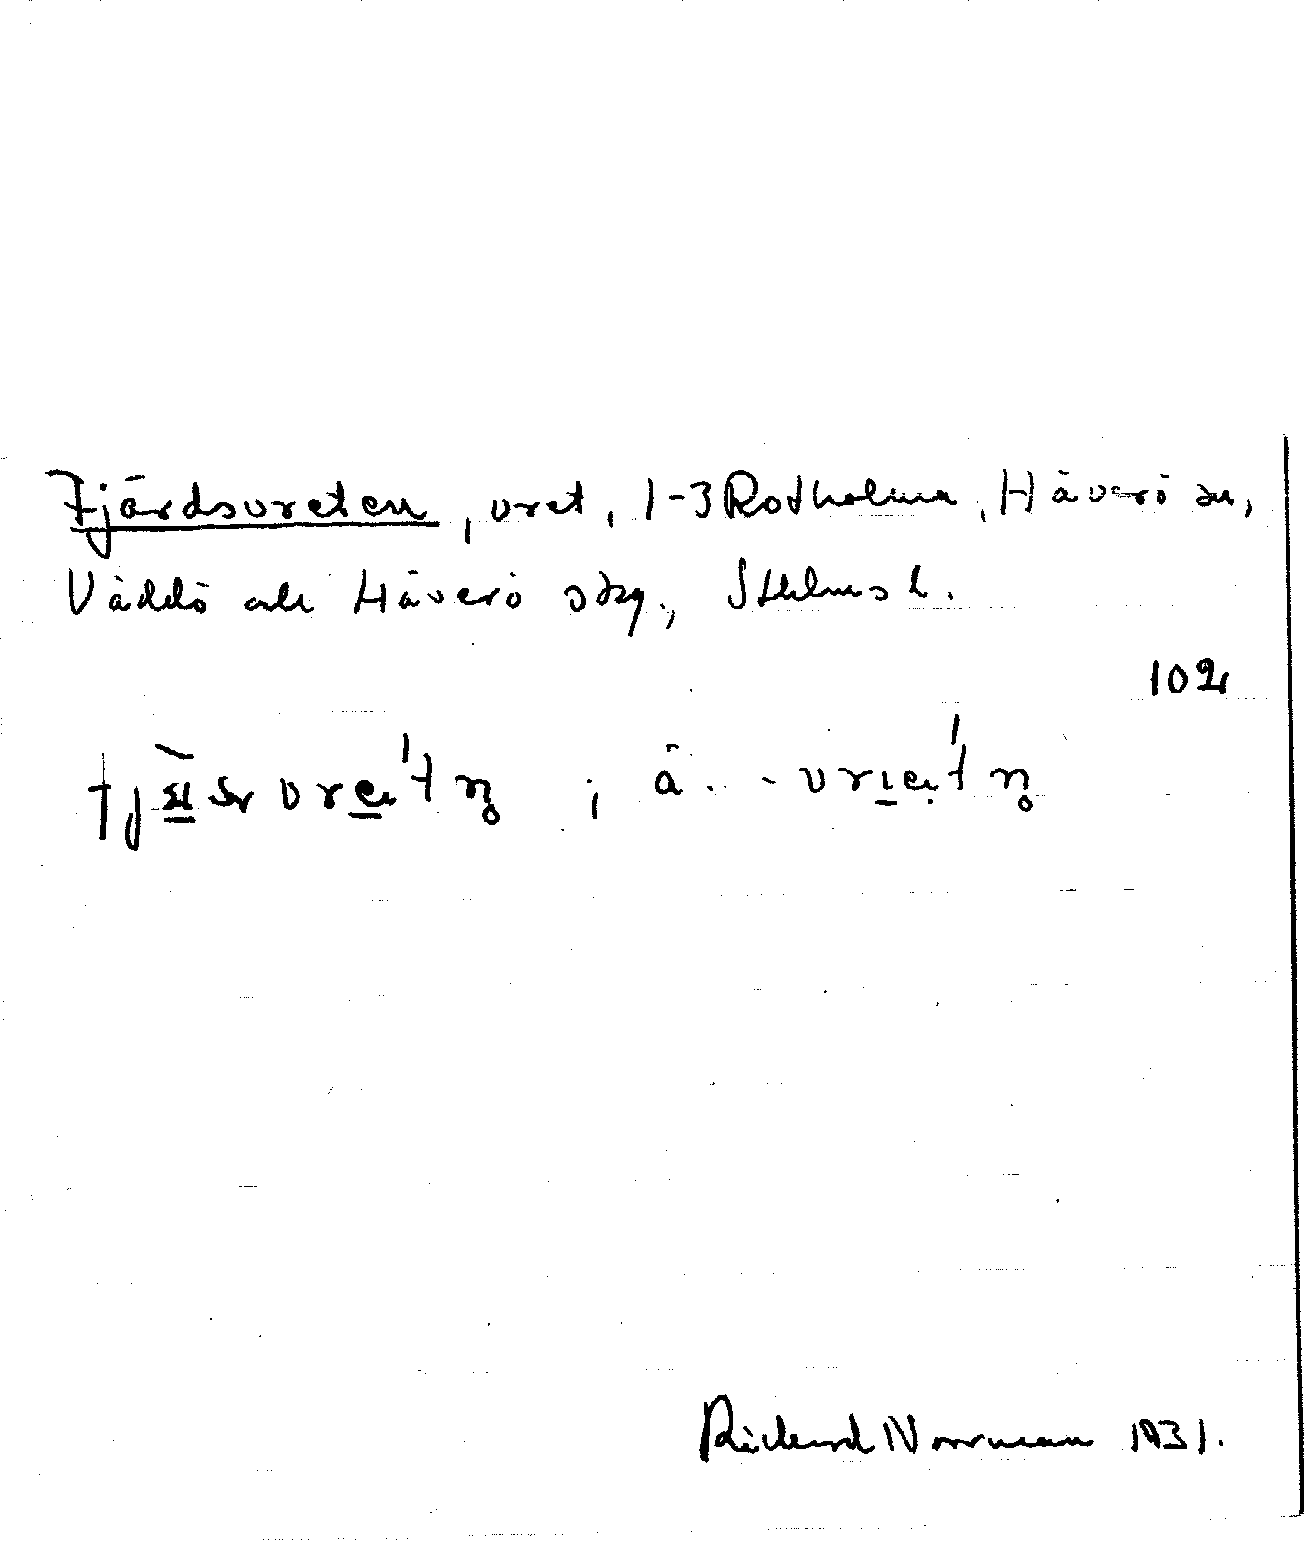 Fjärdsvreten, vret, 1-3 Rotholma, Häverö sn,
Väddö och Häverö skg., Sthlms l.
102
Rickard Norrman 1931.